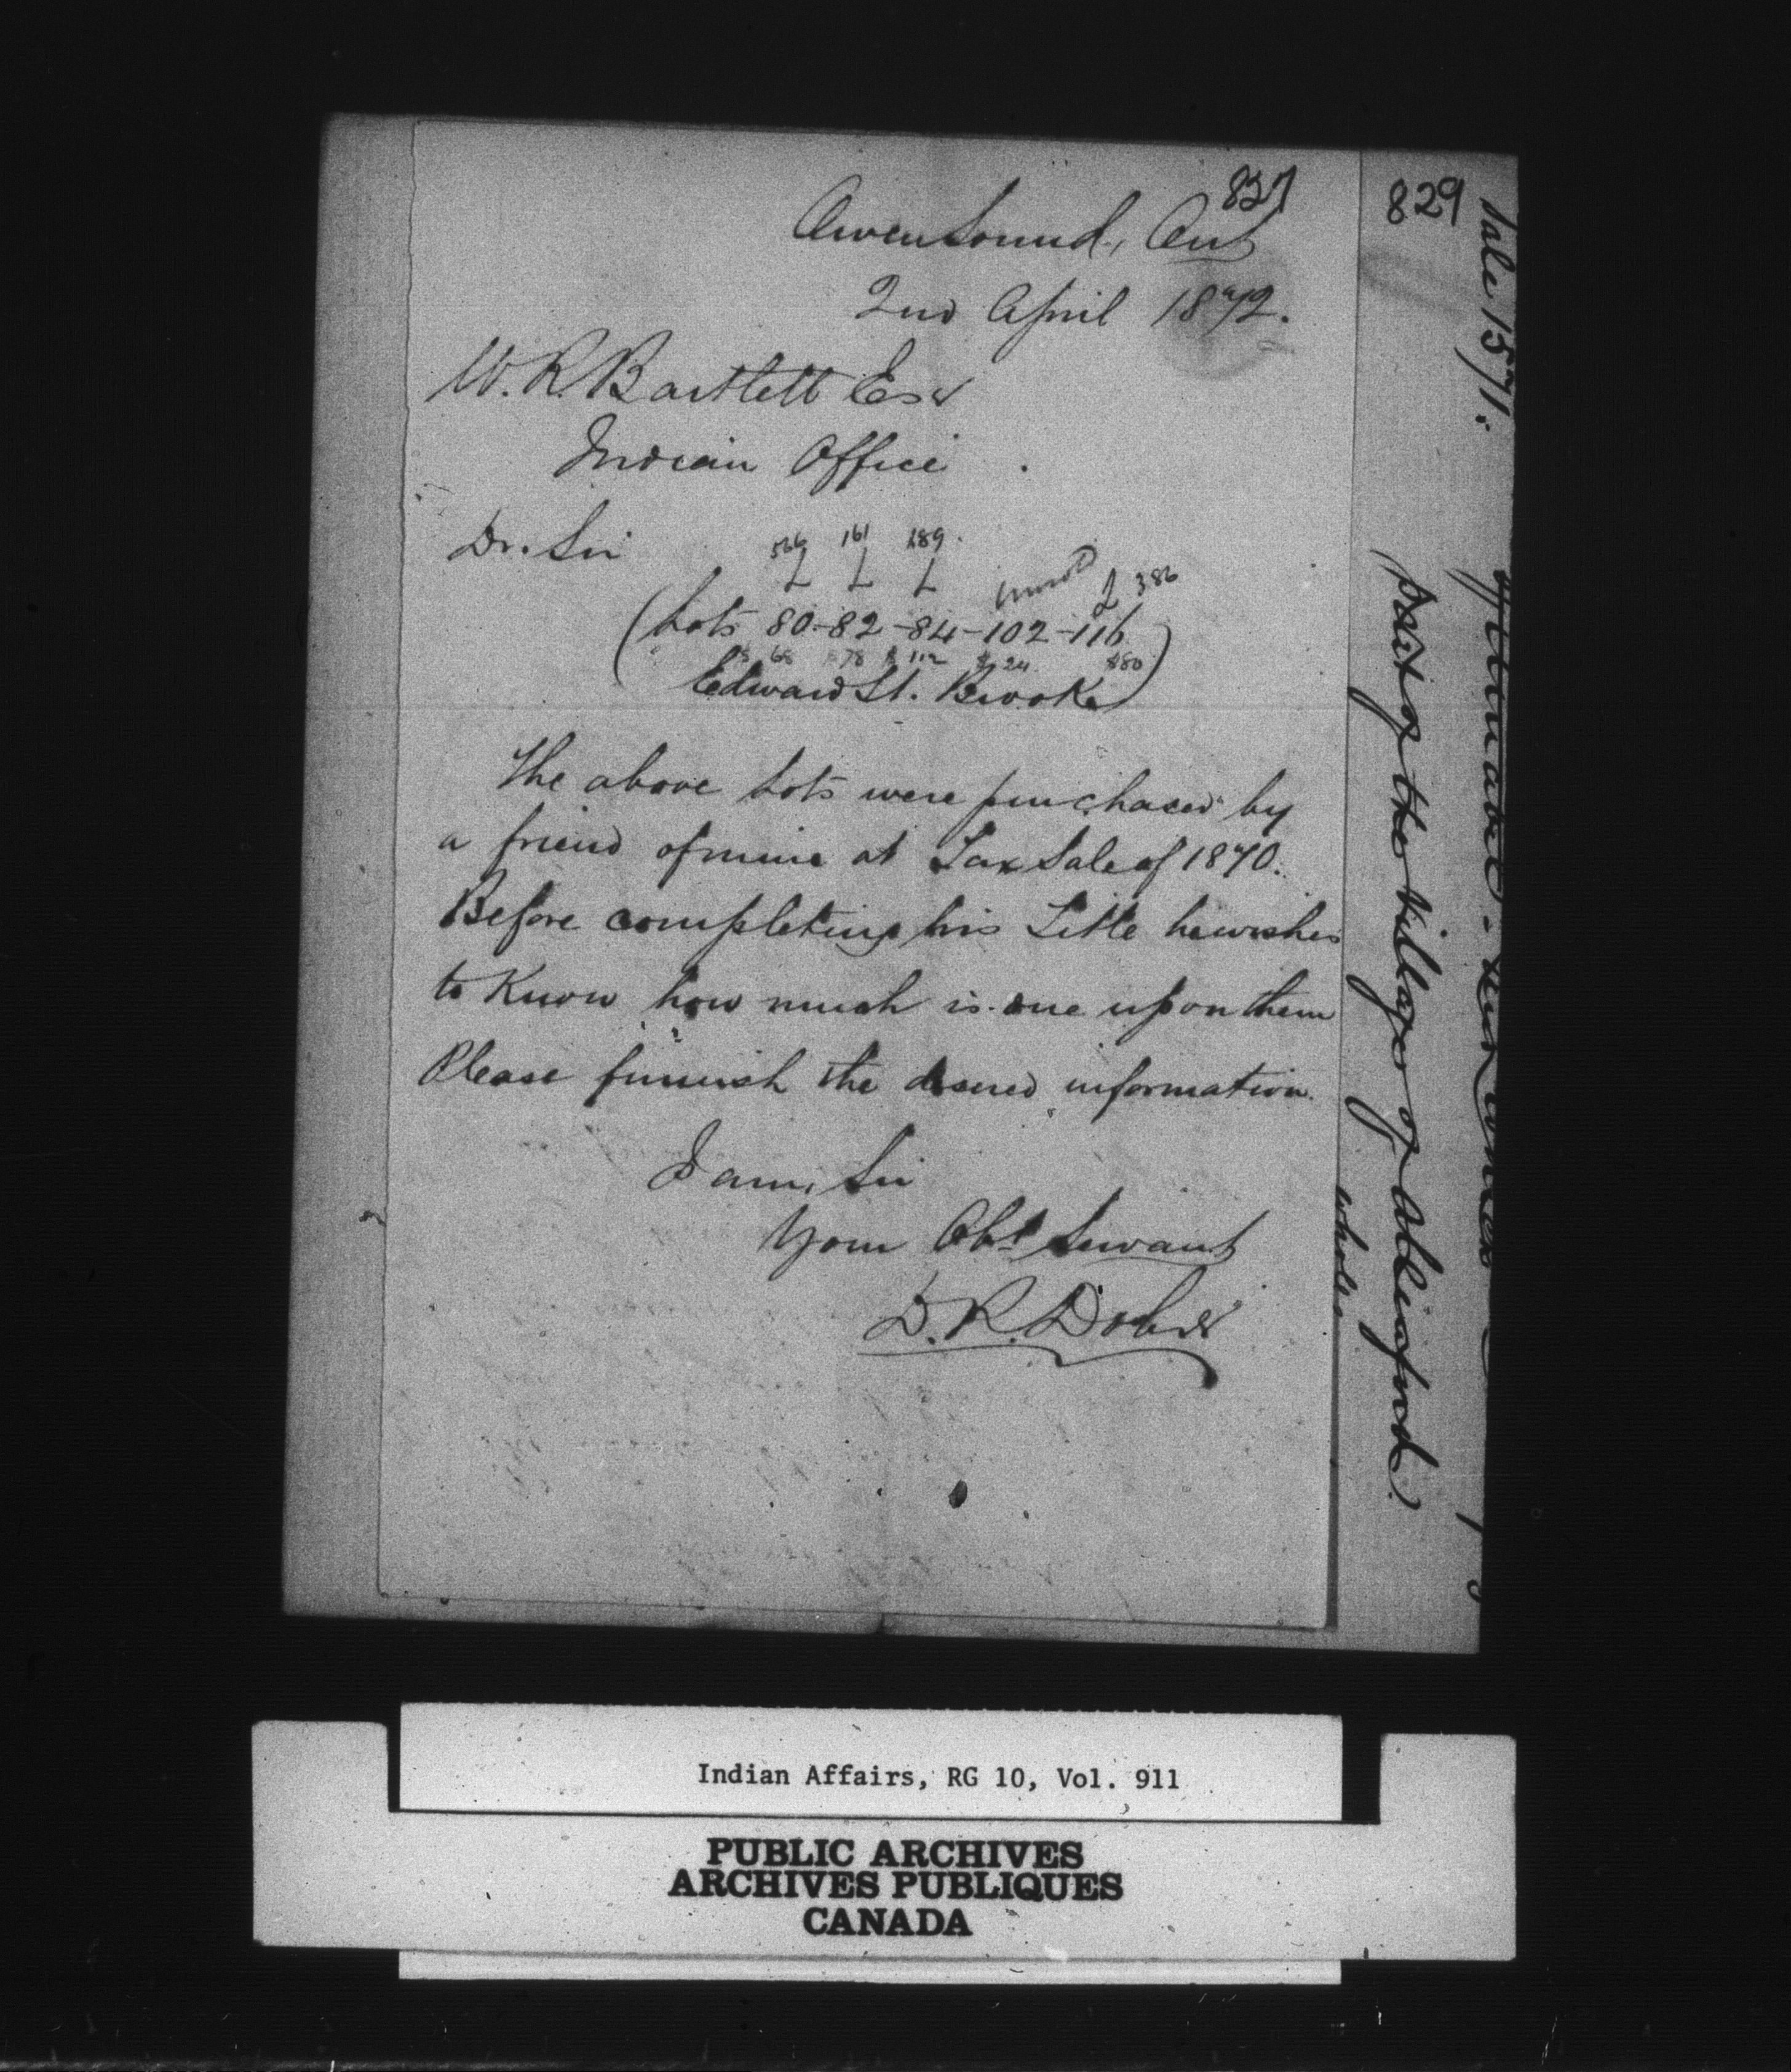 Owen Sound, Ont
2nd April 1872.
W. R. Bartlett Esqr
Indian Office
Dr. Sir
566 161 189.
L L L 386
(Lots 80-82-84-102-116
$ 68 $ 78 $ 112 $ 24 $80
Edward St. Brooke)
The above Lots were purchased by
a friend of mine at Tax Sale of 1870.
Before completing his Title he wishes
to Know how much is due upon them
Please furnish the desired information.
I am, Sir
Your Obt Servant
D. R.
829
Sale 1571.
part of the Village of Allenford.
whole
Indian Affairs, RG 10, Vol. 911
PUBLIC ARCHIVES
ARCHIVES PUBLIQUES
CANADA